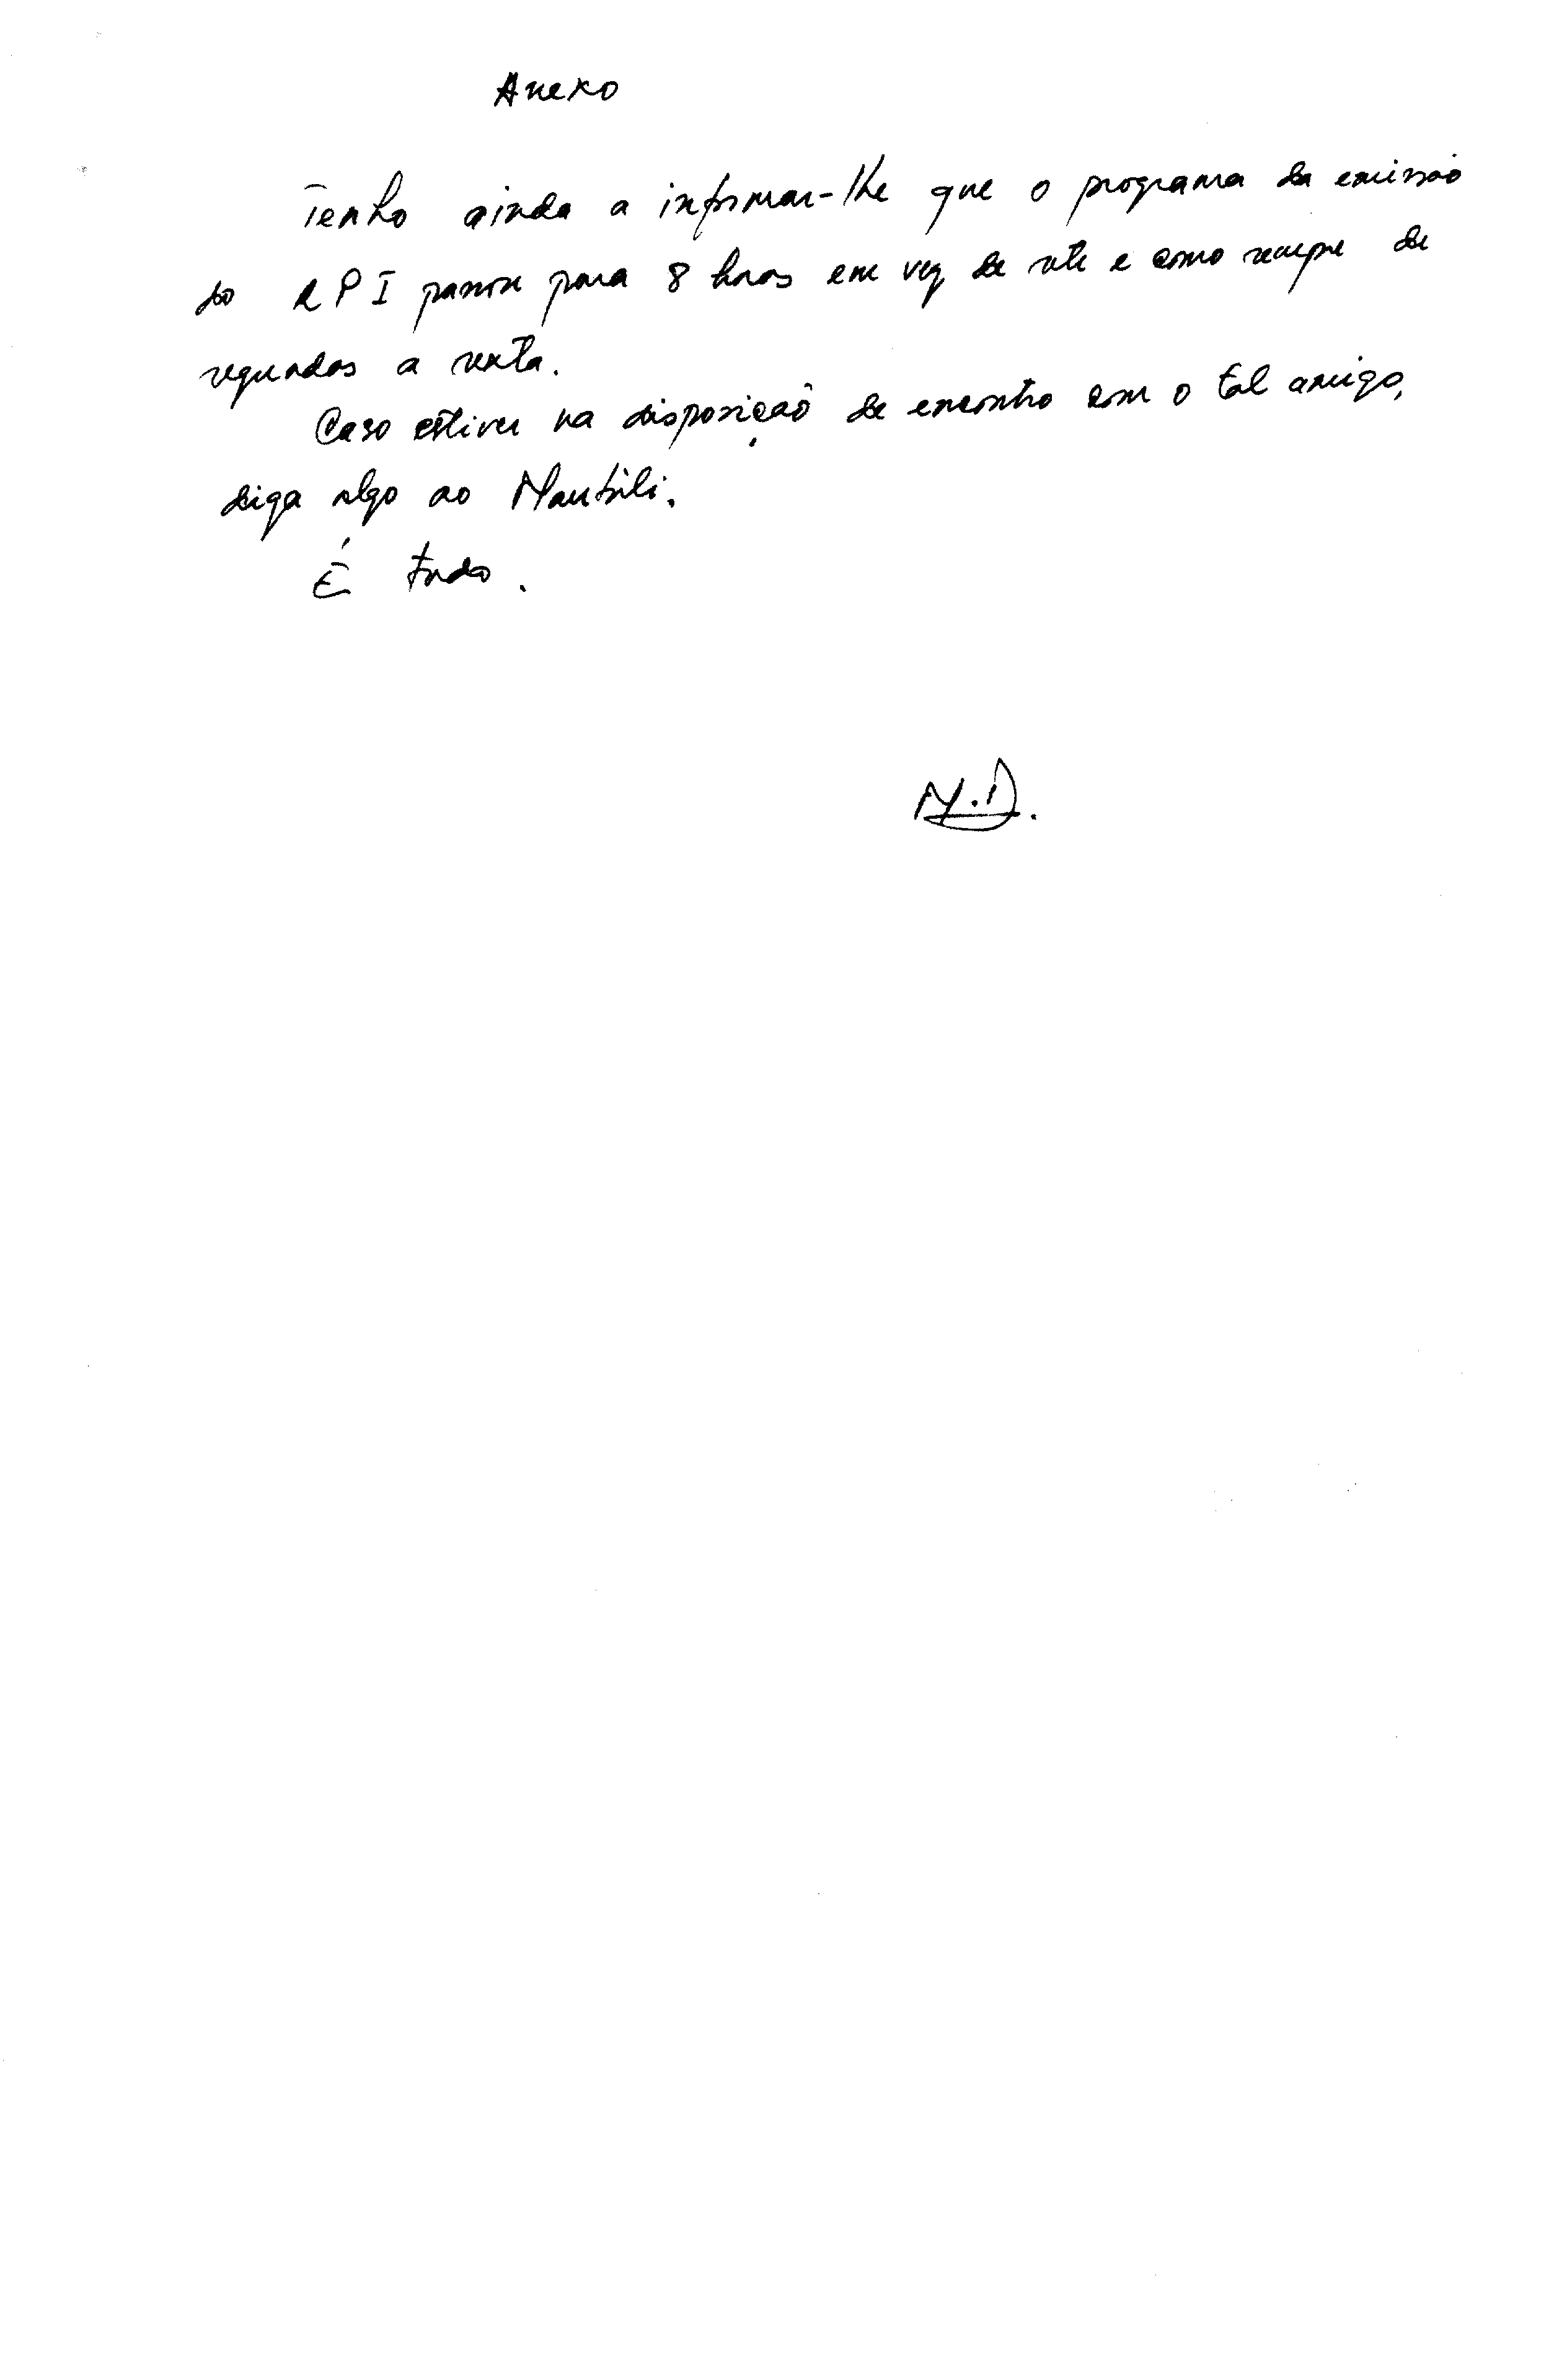 Anexo
Tenho ainda a informar-lhe que o programa da emissão
do RPI passou para 8 horas em vez de sete e como sempre de
segundas a sexta.
Caso estiver na disposição de encontro com o tal amigo,
diga algo ao Maubili.
É tudo.
M.D.